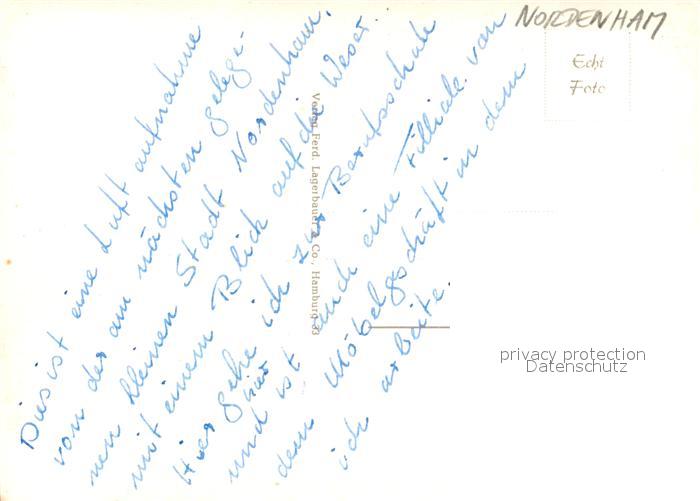 NORDENHAM
Echt
Foto
Dies ist eine Luft aufnahme
von der am nächsten gelege-
nen kleinen Stadt Nordenham,
mit einem Blick auf die Weser
Hier gehe ich zur Berufsschule
und hier ist auch eine Filliale von
dem Möbelgeschäft in dem
ich arbeite.
Verlag Ferd. Lagerbauer & Co., Hamburg 33
privacy protection
Datenschutz